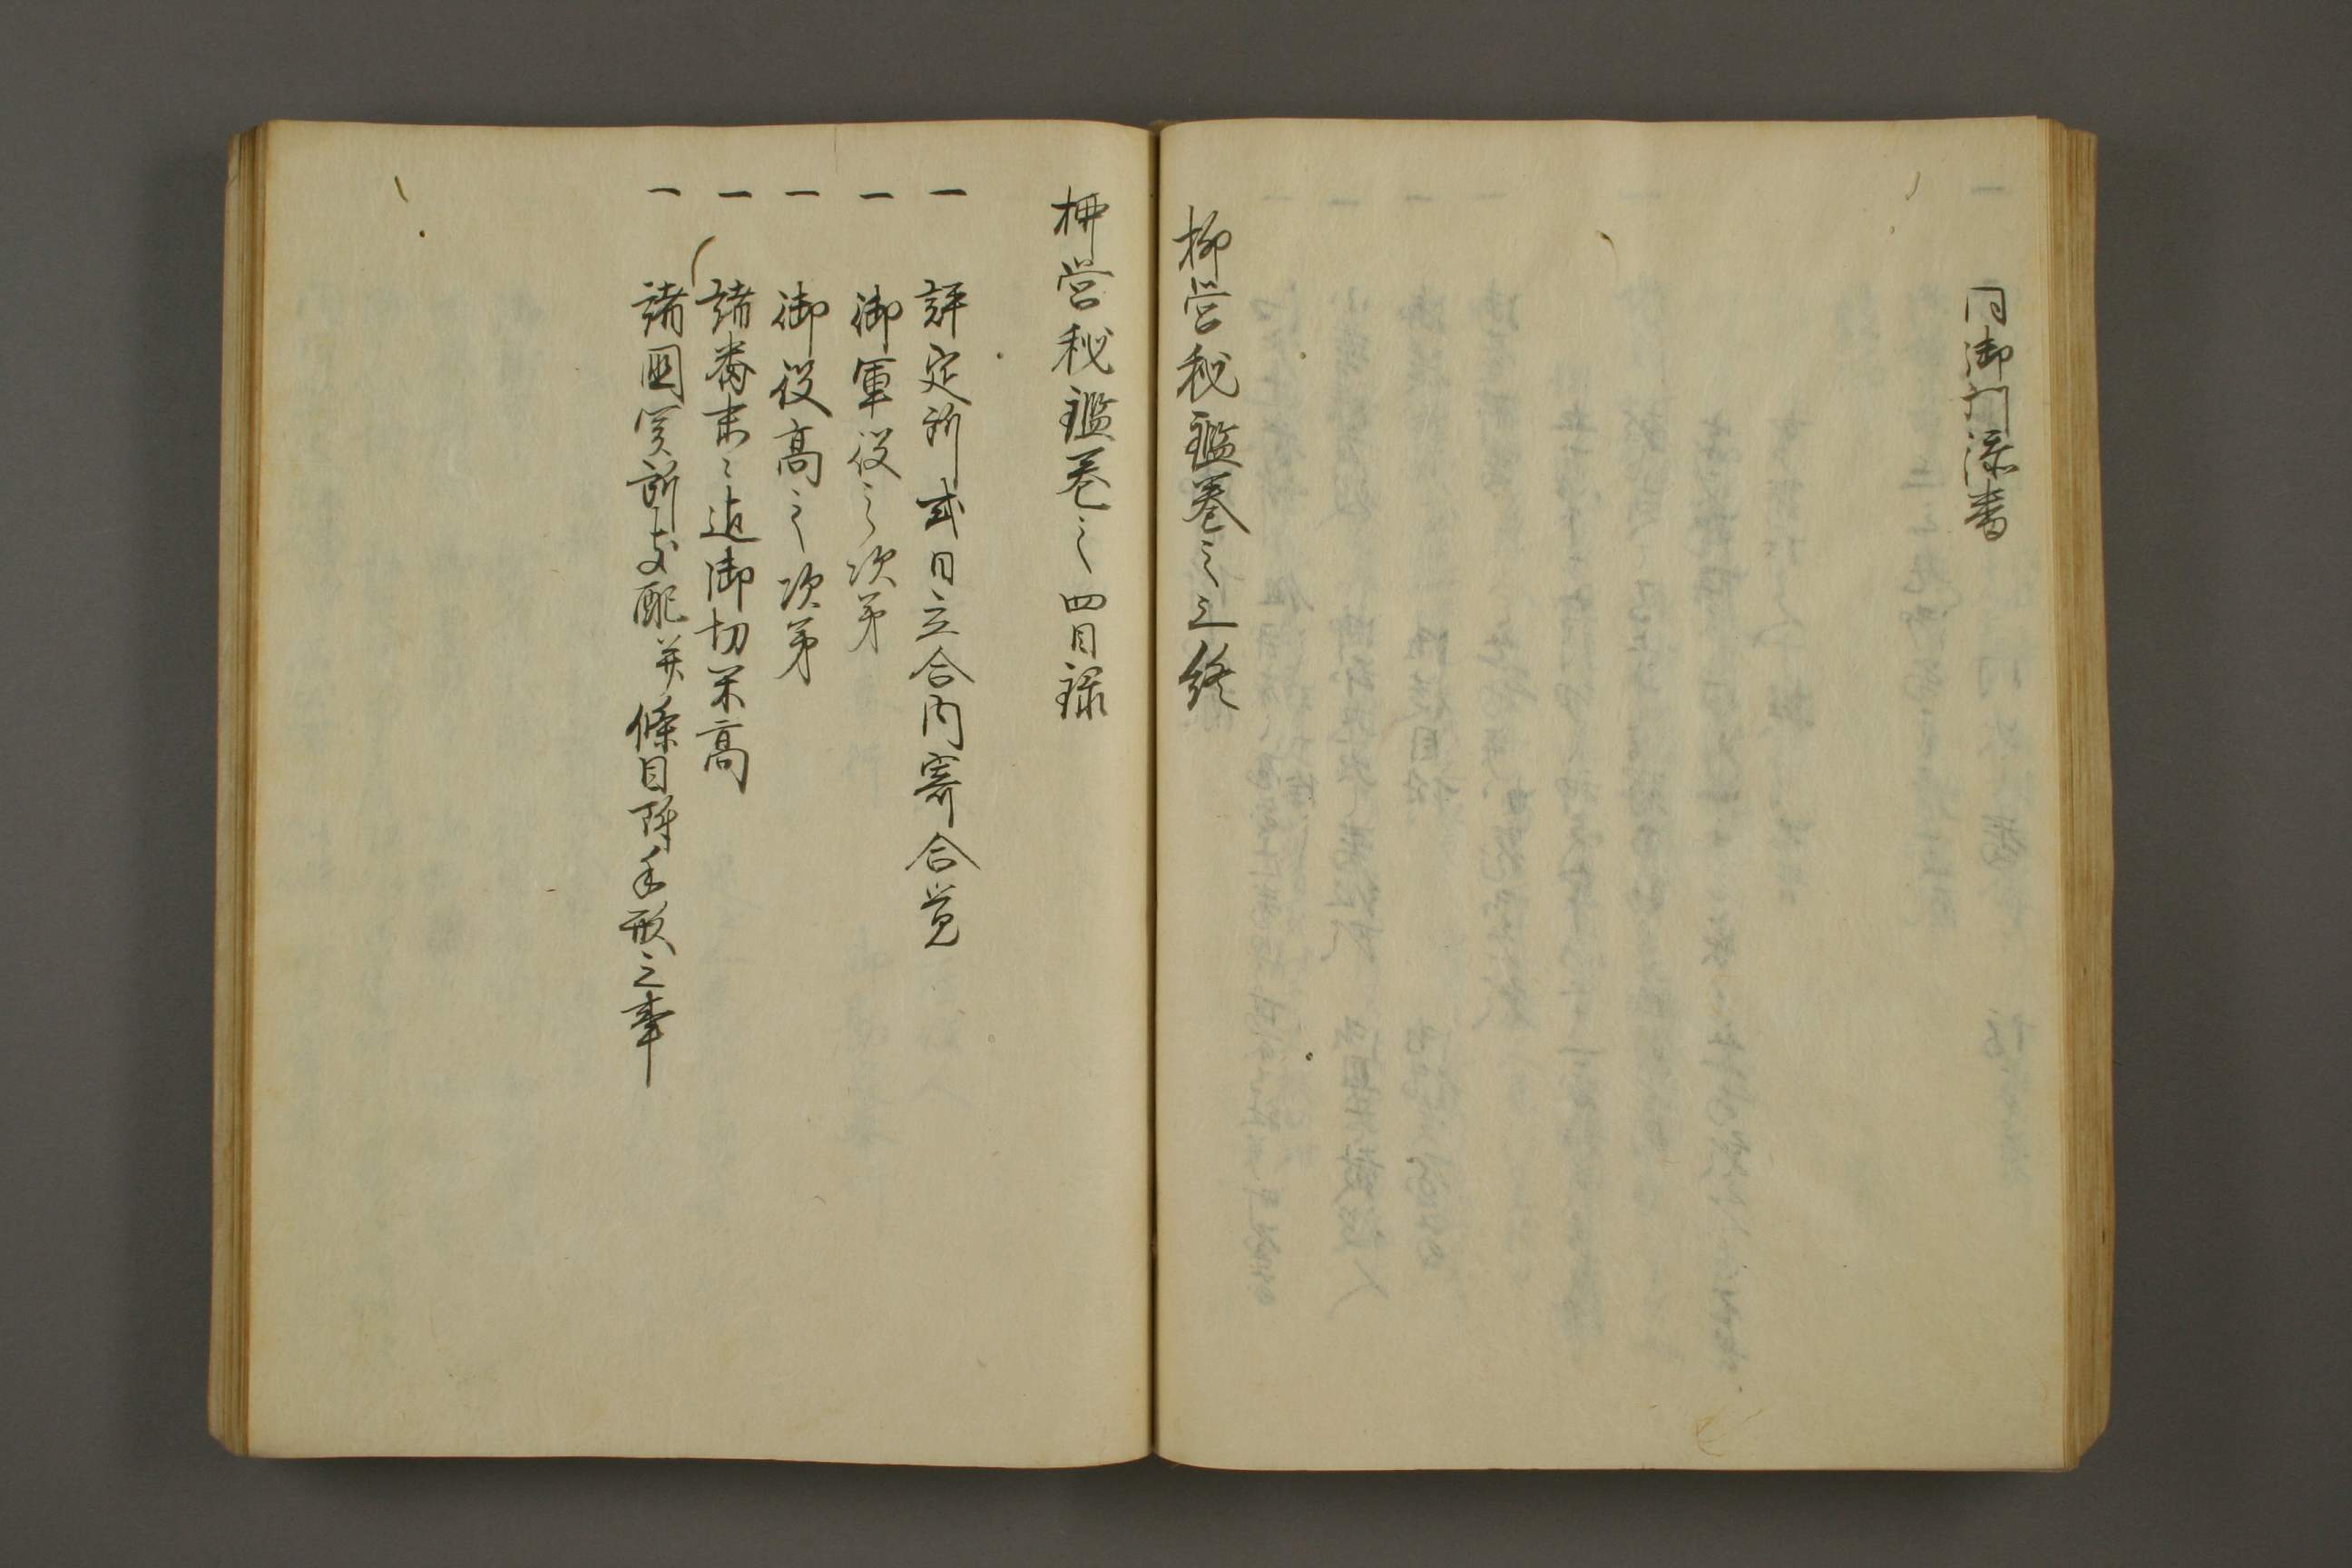 同御門添書
柳営秘鑑巻之三終
柳営秘鑑巻之四目録
一 評定所式日立合内寄合覚
一 御軍役之次第
一 御役高之次第
一 諸番末々迄御切米高
一 諸国関所支配并條目附手形之事